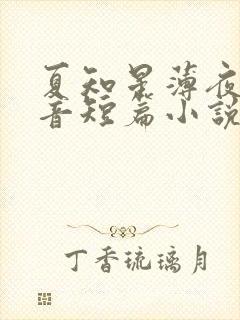 夏知星薄夜
音短篇小説
丁香琉璃月